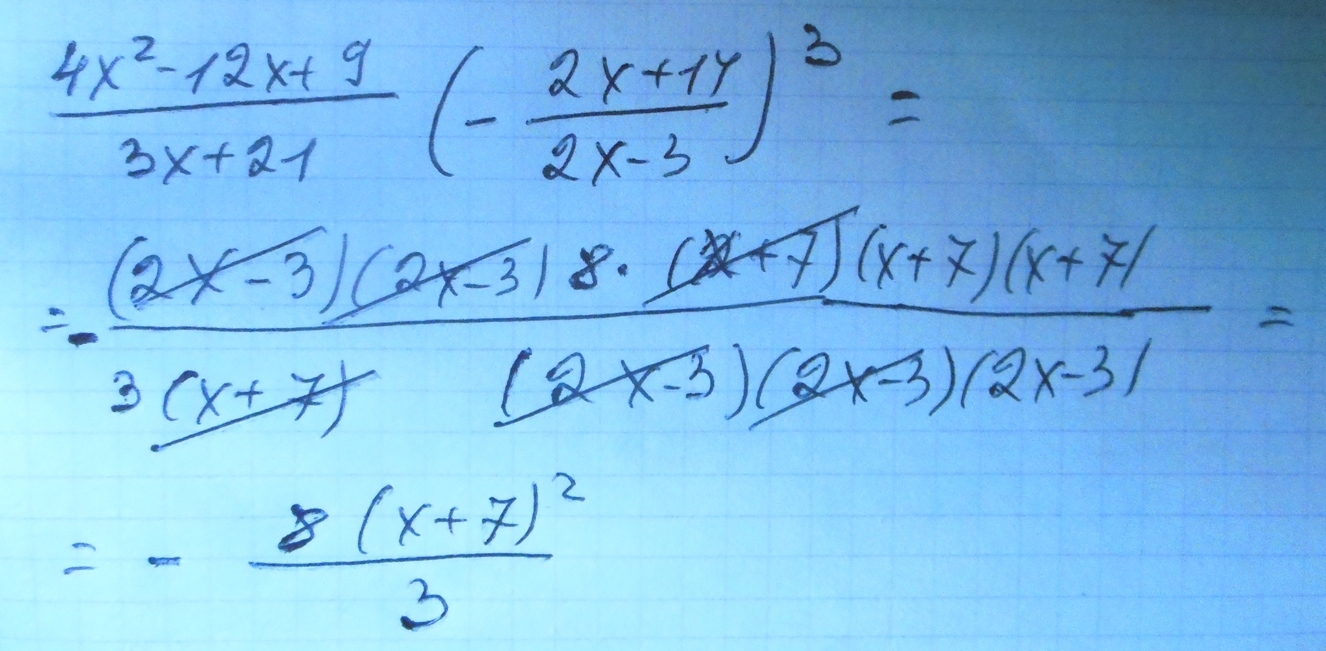 \frac{4x^2-12x+9}{3x+21} \left(-\frac{2x+14}{2x-3}\right)^3 =
= -\frac{(2x-3)(2x-3) 8 \cdot (x+7)(x+7)(x+7)}{3(x+7) (2x-3)(2x-3)(2x-3)} =
= -\frac{8(x+7)^2}{3}